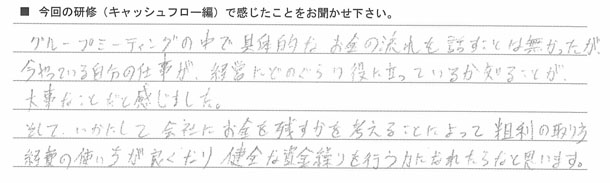 ■ 今回の研修（キャッシュフロー編）で感じたことをお聞かせ下さい。
グループミーティングの中で具体的なお金の流れを話すことは無かったが、
今やっている自分の仕事が、経営にどのぐらい役に立っているか知ることが、
大事なことだと感じました。
そして、いかにして会社にお金を残すかを考えることによって粗利の取り方
経費の使い方が良くなり健全な資金繰りを行う力になれたらなと思います。